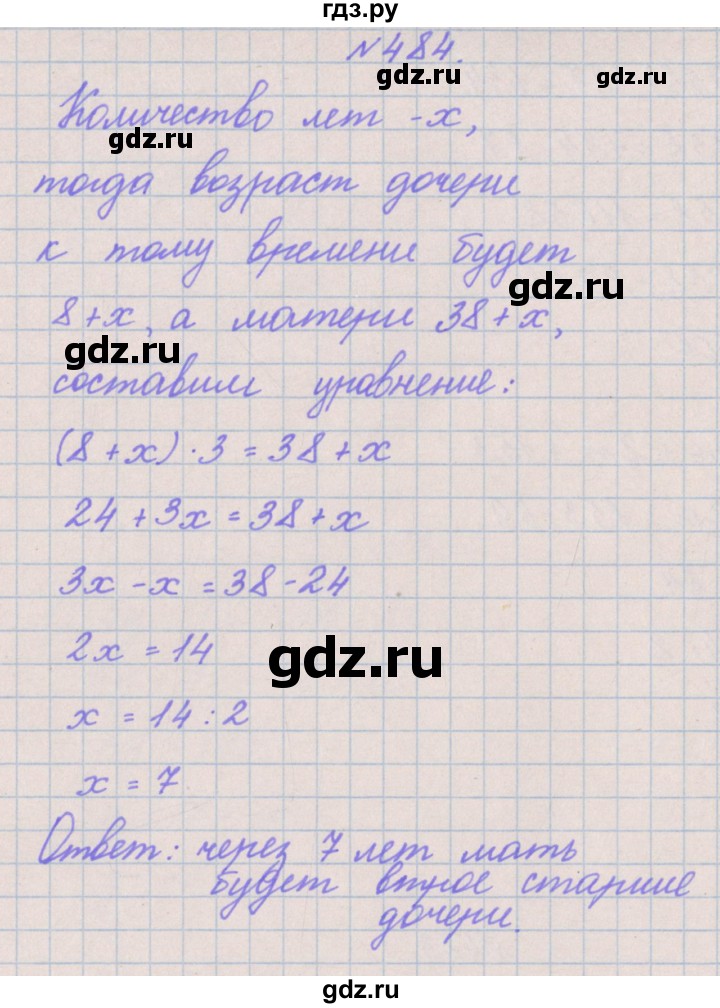 гдз.ру
№484.
gdz.ru
gdz.ru
Количество лет - x,
gdz.ru
тогда возраст дочери
к тому времени будет
gdz.ru
8 + x, а матери 38 + x,
gdz.ru
составим уравнение:
(8 + x) · 3 = 38 + x
24 + 3x = 38 + x
3x - x = 38 - 24
2x = 14
gdz.ru
x = 14 : 2
x = 7
Ответ: через 7 лет мать
будет втрое старше
дочери.
gdz.ru